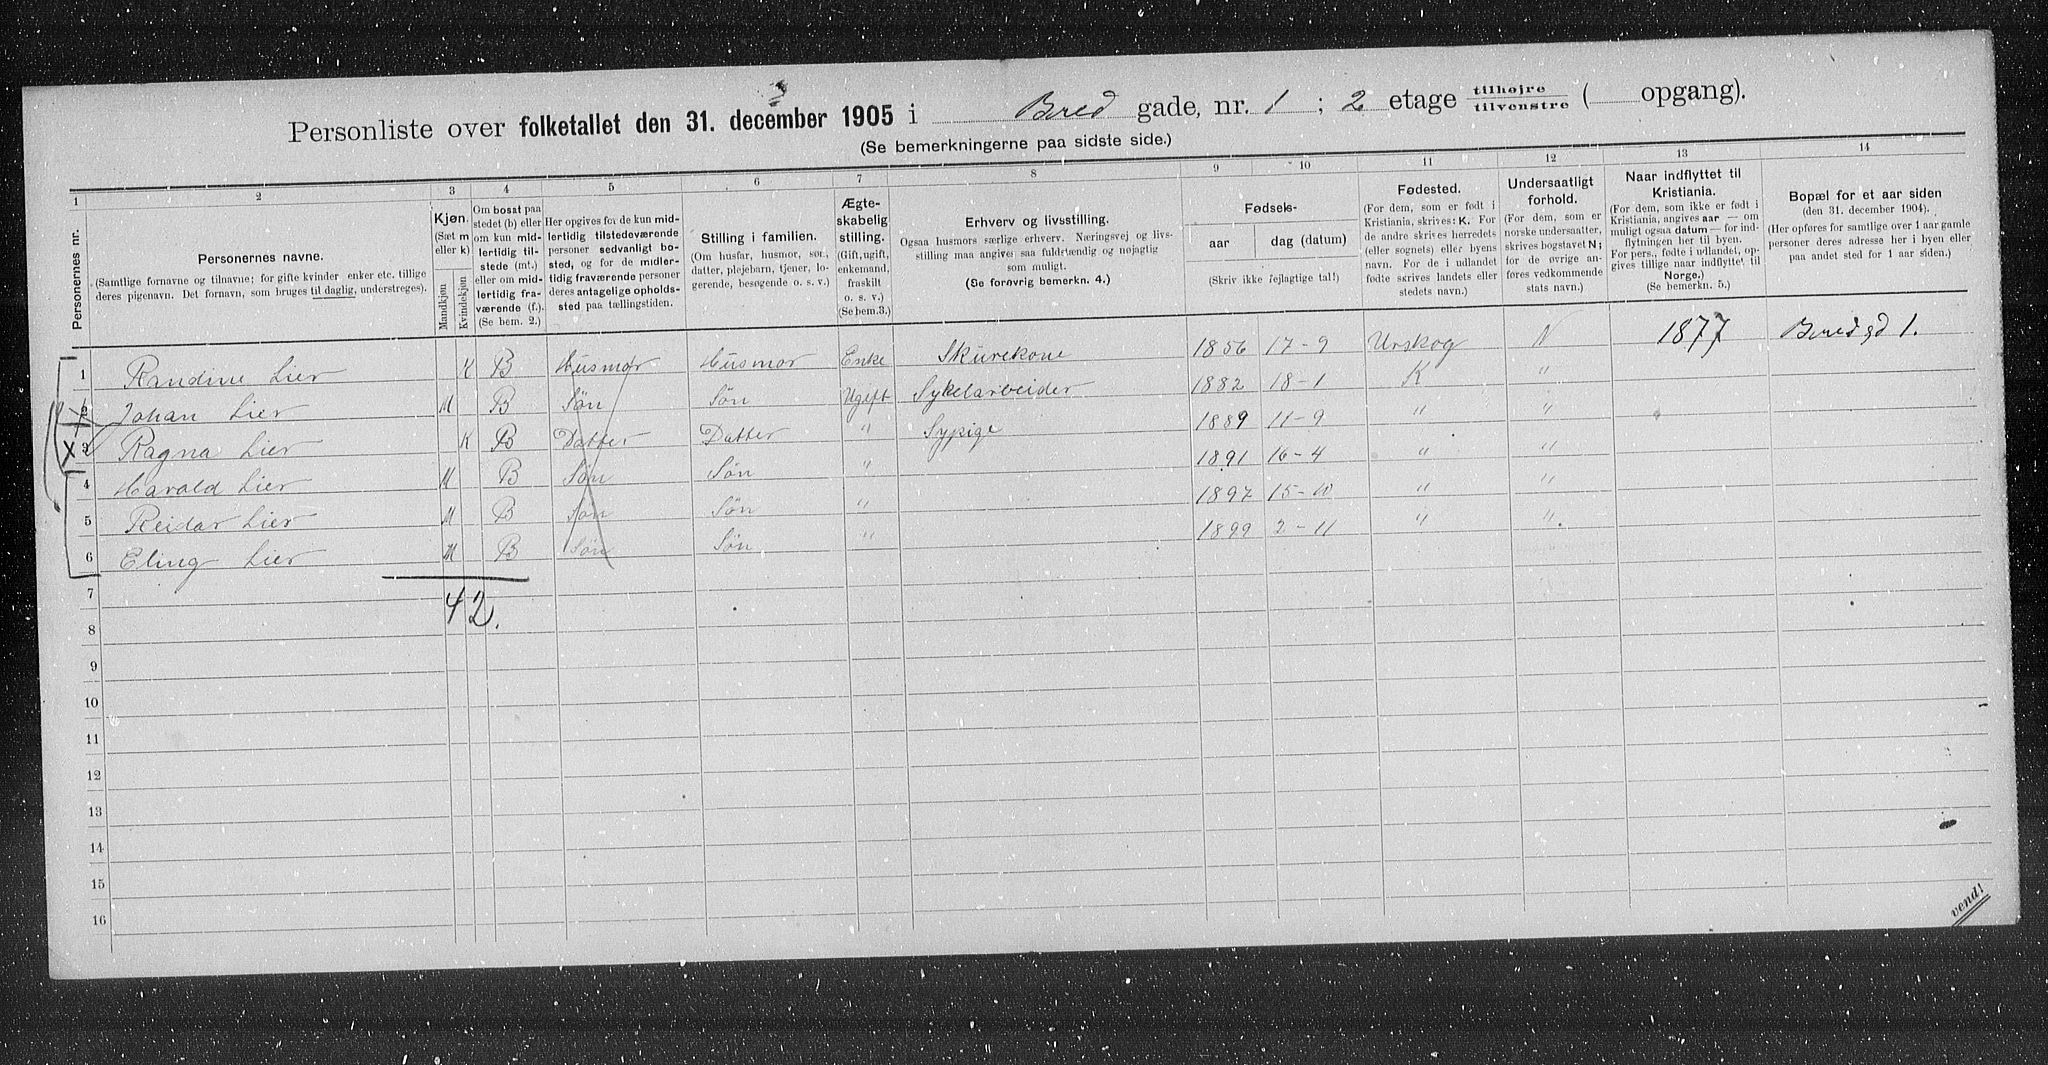 Personliste over folketallet den 31. december 1905 i Bred gade, nr. 1 ; 2 etage tilhøjre tilvenstre ( opgang).
(Se bemerkningerne paa sidste side.)
1 2 3 4 5 6 7 8 9 10 11 12 13 14
Personernes nr.
Personernes navne.
(Samtlige fornavne og tilnavne; for gifte kvinder enker etc. tillige
deres pigenavn. Det fornavn, som bruges til daglig, understreges).
Kjøn.
(Sæt m
eller k)
Mandkjøn
Kvindekjøn
Om bosat paa
stedet (b) eller
om kun mid-
lertidig til-
stede (mt.)
eller om mid-
lertidig fra-
værende (f.).
(Se bem. 2.)
Her opgives for de kun mid-
lertidig tilstedeværende
personer sedvanlig bo-
sted, og for de midler-
tidig fraværende personer
deres antagelige opholds-
sted paa tællingstiden.
Stilling i familien.
(Om husfar, husmor, søn,
datter, plejebarn, tjener, lo-
gerende, besøgende o. s. v.)
Ægte-
skabelig
stilling.
(Gift, ugift,
enkemand,
fraskilt
o. s. v.)
(Se bem.3.)
Erhverv og livsstilling.
Ogsaa husmors særlige erhverv. Næringsvej og livs-
stilling maa angives saa fuldstændig og nøjagtig
som muligt.
(Se forøvrig bemerkn. 4.)
Fødsels-
aar dag (datum)
(Skriv ikke fejlagtige tal!)
Fødested.
(For dem, som er født i
Kristiania, skrives: K. For
de andre skrives herredets
(eller sognets) eller byens
navn. For de i udlandet
fødte skrives landets eller
stedets navn.)
Undersaatligt
forhold.
(For dem, som er
norske undersaatter,
skrives bogstavet N;
for de øvrige an-
føres vedkommende
stats navn.)
Naar indflyttet til
Kristiania.
(For dem, som ikke er født i
Kristiania, angives aar — om
muligt ogsaa datum — for ind-
flytningen her til byen.
For pers., fødte i udlandet, op-
gives tillige naar indflyttet til
Norge.)
(Se bemerkn. 5.)
Bopæl for et aar siden
(den 31. december 1904).
(Her opføres for samtlige over 1 aar gamle
personer deres adresse her i byen eller
paa andet sted for 1 aar siden.)
1 Randine Lier K B Husmor Husmor Enke Skurekone 1856 17-9 Urskog N 1877 Bredgd 1.
2 Johan Lier M B Søn Søn Ugift Sykelarbeider 1882 18-1 K "
3 Ragna Lier K B Datter Datter " Sypige 1889 11-9 " "
4 Harald Lier M B Søn Søn " 1891 16-4 " "
5 Reidar Lier M B Søn Søn " 1897 15-10 " "
6 Eling Lier M B Søn Søn " 1899 2-11 " "
7
42.
8
9
10
11
12
13
14
15
16
vend!